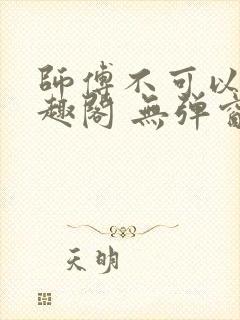 師傅不可以
趣閣 無彈
天明